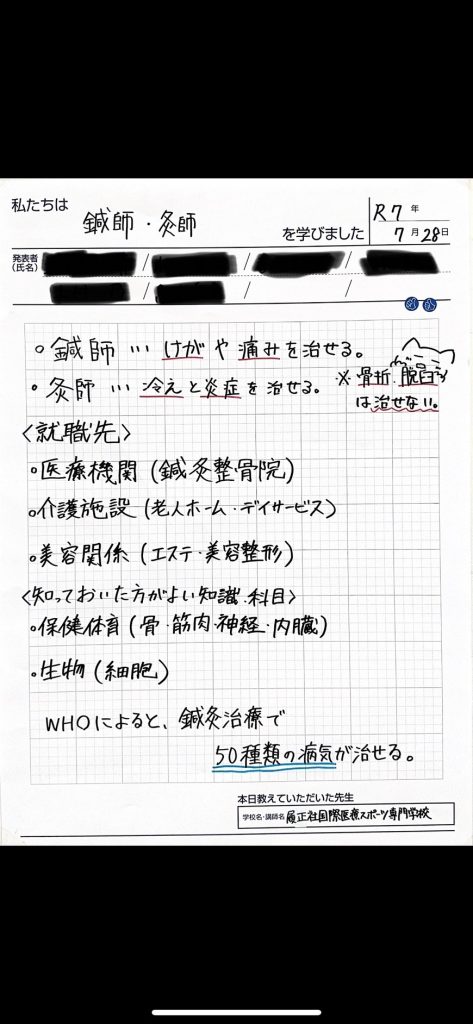 私たちは
鍼師・灸師
を学びました
R7年
7月28日
発表者
(氏名)
/ / /
/ / /
。鍼師…けがや痛みを治せる。
。灸師…冷えと炎症を治せる。
※骨折.脱臼
は治せない。
〈就職先〉
。医療機関(鍼灸整骨院)
。介護施設(老人ホーム・デイサービス)
。美容関係(エステ・美容整形)
〈知っておいた方がよい知識.科目〉
。保健体育(骨・筋肉・神経・内臓)
。生物(細胞)
WHOによると、鍼灸治療で
50種類の病気が治せる。
本日教えていただいた先生
学校名・講師名 履正社国際医療スポーツ専門学校